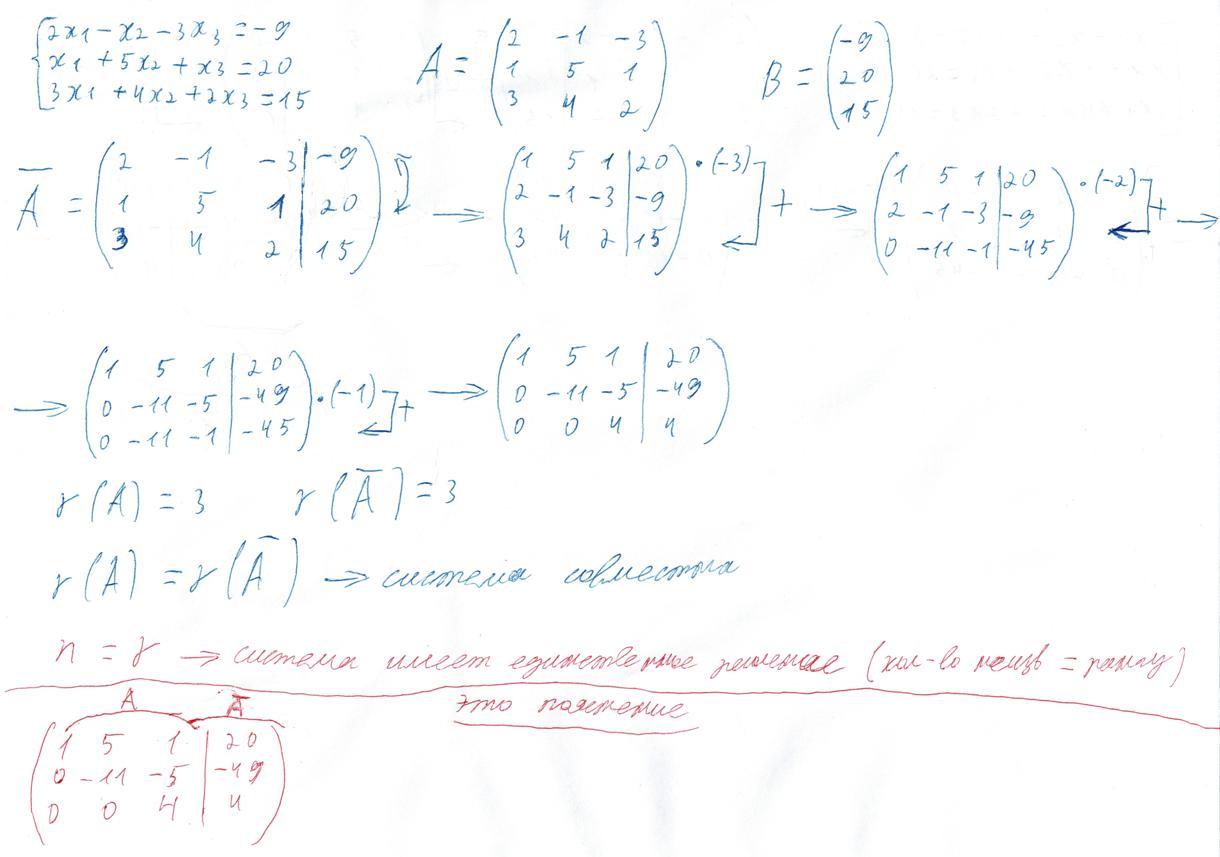 2x1 − x2 − 3x3 = −9
x1 + 5x2 + x3 = 20
3x1 + 4x2 + 2x3 = 15
A = ( 2 −1 −3
1 5 1
3 4 2 )
B = ( −9
20
15 )
A̅ = ( 2 −1 −3 | −9
1 5 1 | 20
3 4 2 | 15 ) →
( 1 5 1 | 20
2 −1 −3 | −9
3 4 2 | 15 ) · (−3) + →
( 1 5 1 | 20
2 −1 −3 | −9
0 −11 −1 | −45 ) · (−2) + →
→ ( 1 5 1 | 20
0 −11 −5 | −49
0 −11 −1 | −45 ) · (−1) + →
( 1 5 1 | 20
0 −11 −5 | −49
0 0 4 | 4 )
r (A) = 3 r (A̅) = 3
r (A) = r (A̅) → система совместна
n = r → система имеет единственное решение (кол-во неизв = рангу)
Это пояснение
A A̅
( 1 5 1 | 20
0 −11 −5 | −49
0 0 4 | 4 )